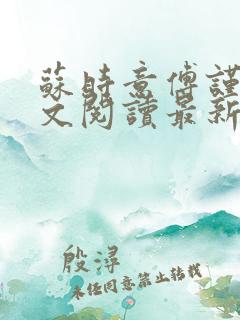 蘇時意傅謹
文閱讀最新
殷尋
未經同意禁止轉載